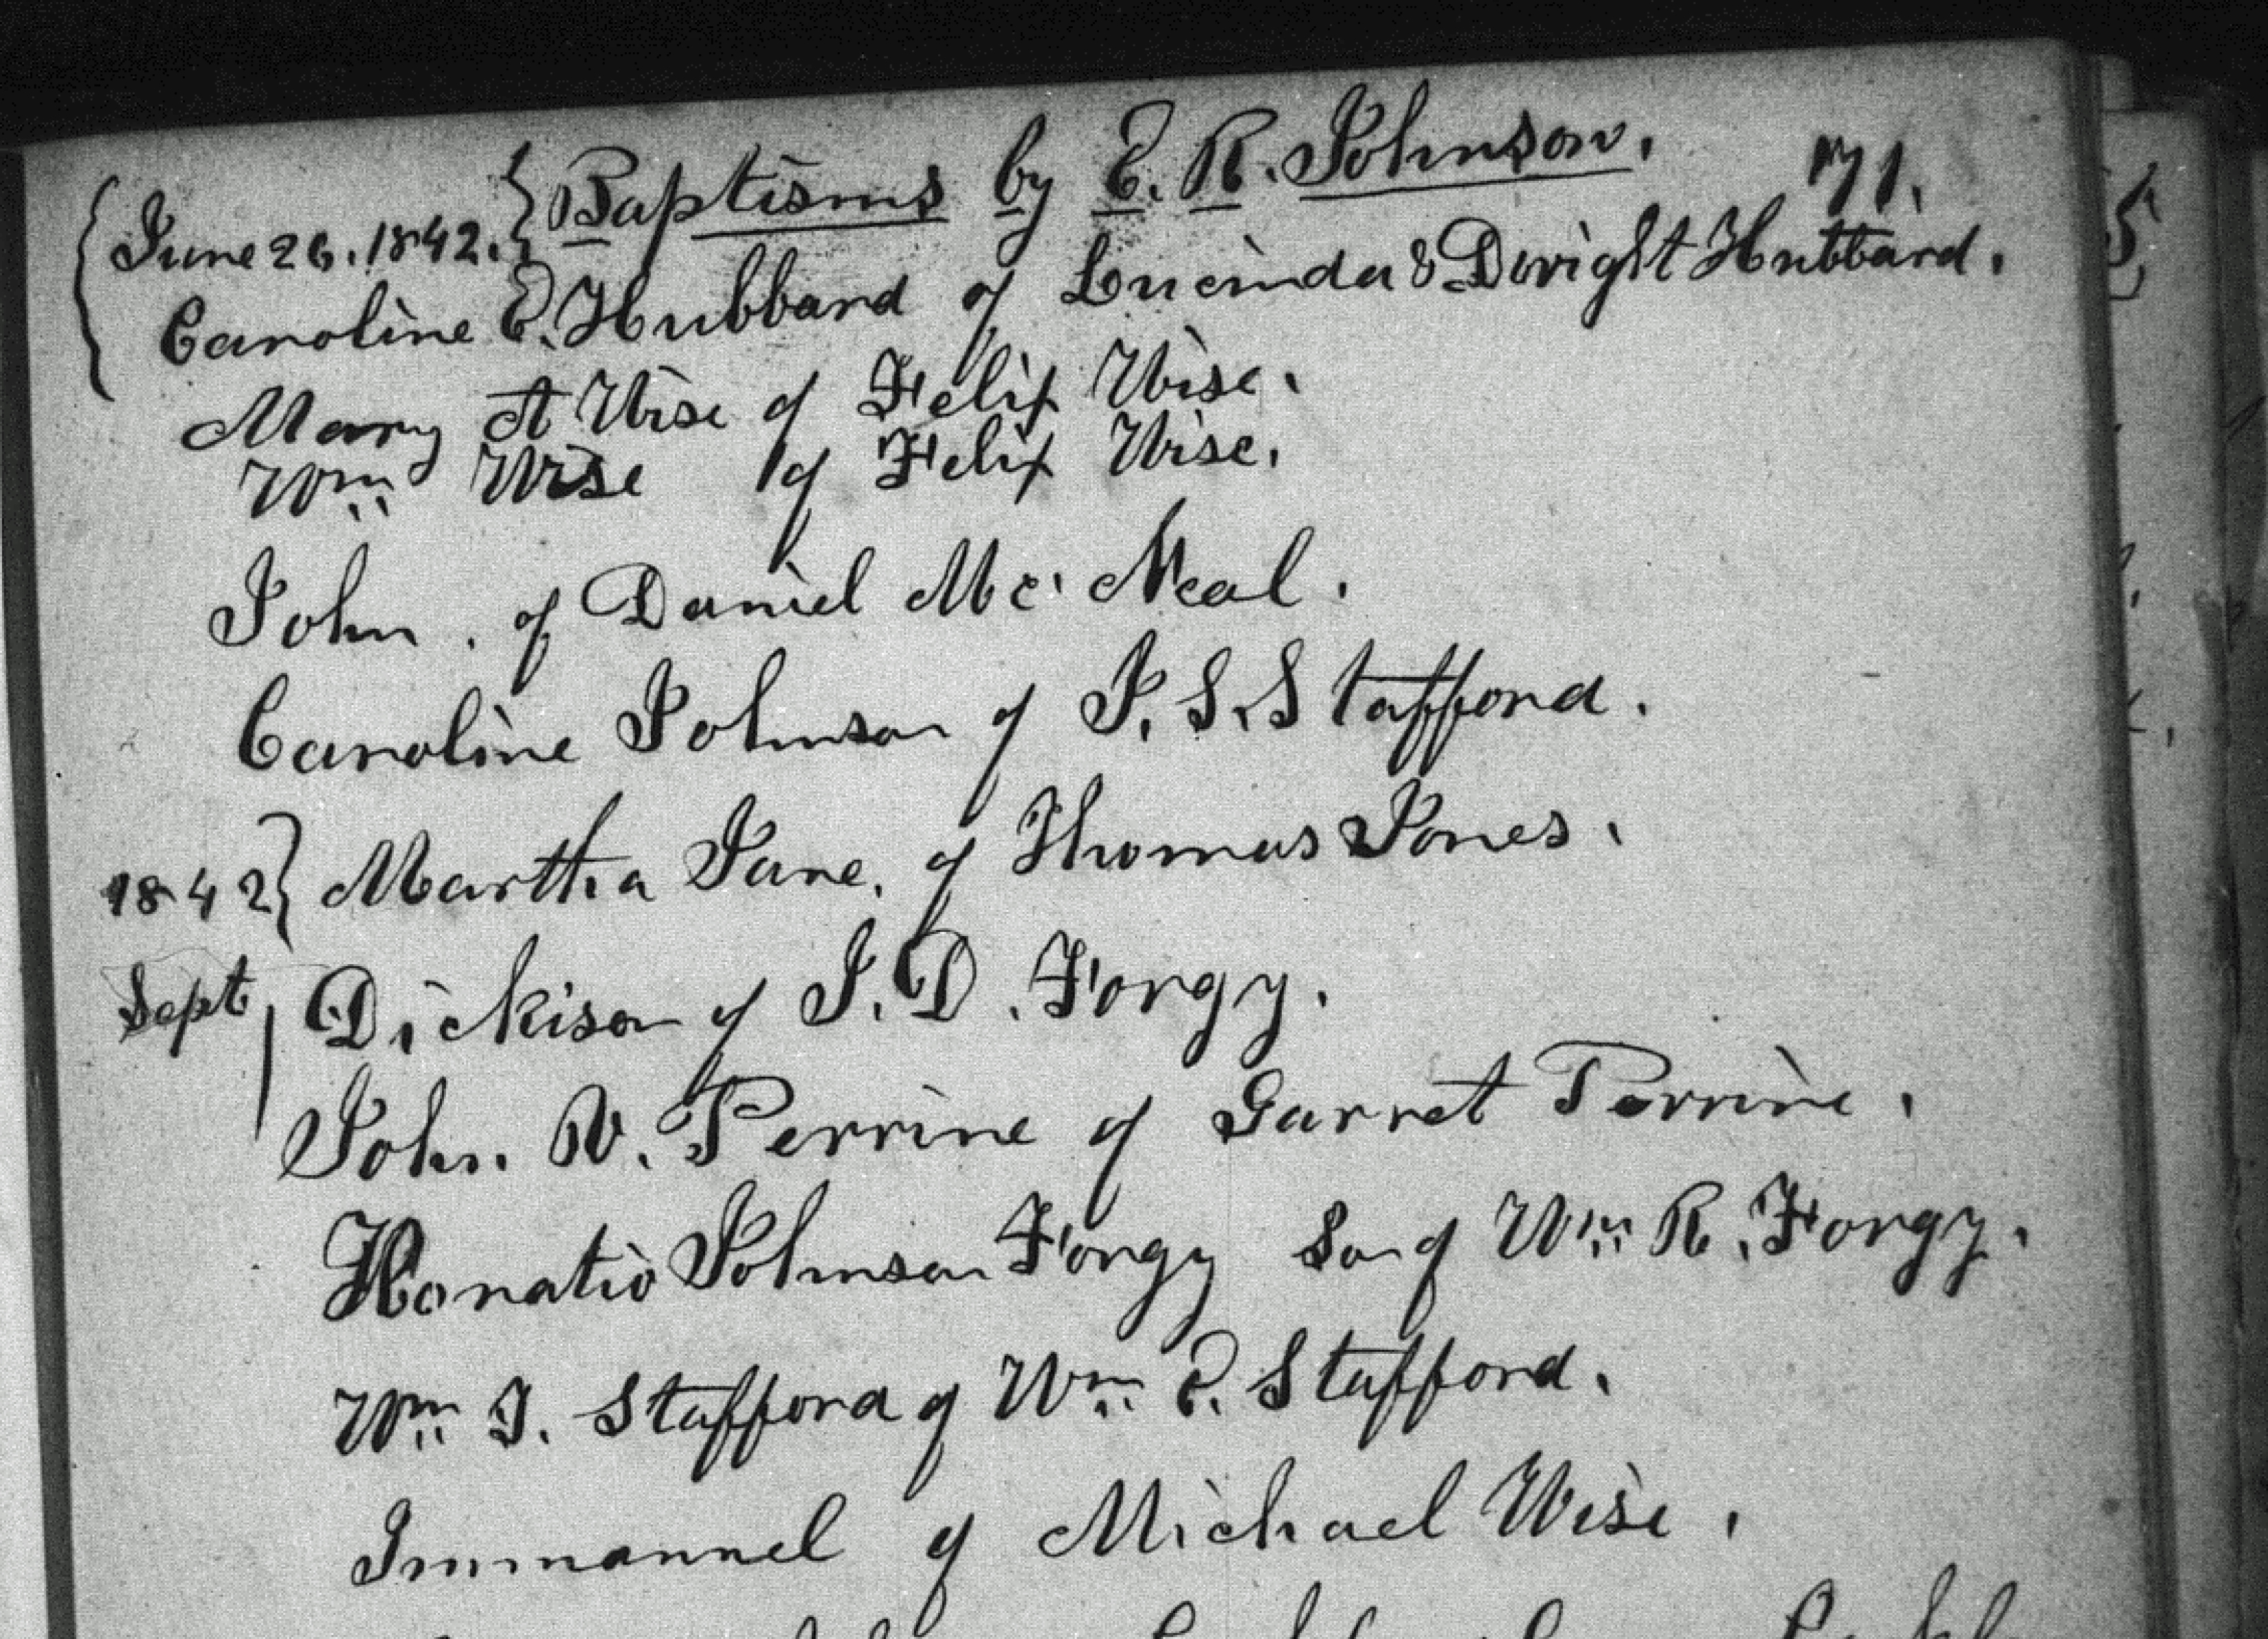 Baptisms by E. R. Johnson. 171.
June 26. 1842.
Caroline E. Hubbard of Lucinda & Dwight Hubbard.
Mary A Wise of Felix Wise.
Wm Wise of Felix Wise.
John. of Daniel Mc. Neal.
Caroline Johnson of J. S. Stafford.
1842 Martha Jane. of Thomas Jones.
Sept Dickison of J. D. Forgy.
John. V. Perrine of Garret Perrine.
Horatio Johnson Forgy Son of Wm R. Forgy.
Wm J. Stafford of Wm P. Stafford.
Immanuel of Michael Wise.